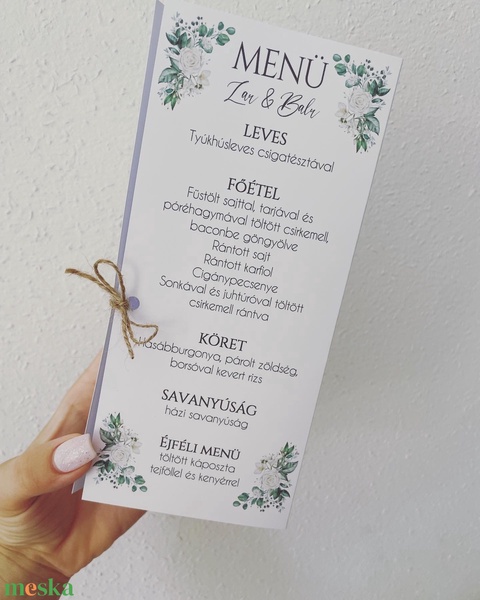 MENÜ
Zar & Balu
LEVES
Tyúkhúsleves csigatésztával
FŐÉTEL
Füstölt sajttal, tarjával és
póréhagymával töltött csirkemell,
baconbe göngyölve
Rántott sajt
Rántott karfiol
Cigánypecsenye
Sonkával és juhtúróval töltött
csirkemell rántva
KÖRET
Hasábburgonya, párolt zöldség,
borsóval kevert rizs
SAVANYÚSÁG
házi savanyúság
ÉJFÉLI MENÜ
töltött káposzta
tejföllel és kenyérrel
meska